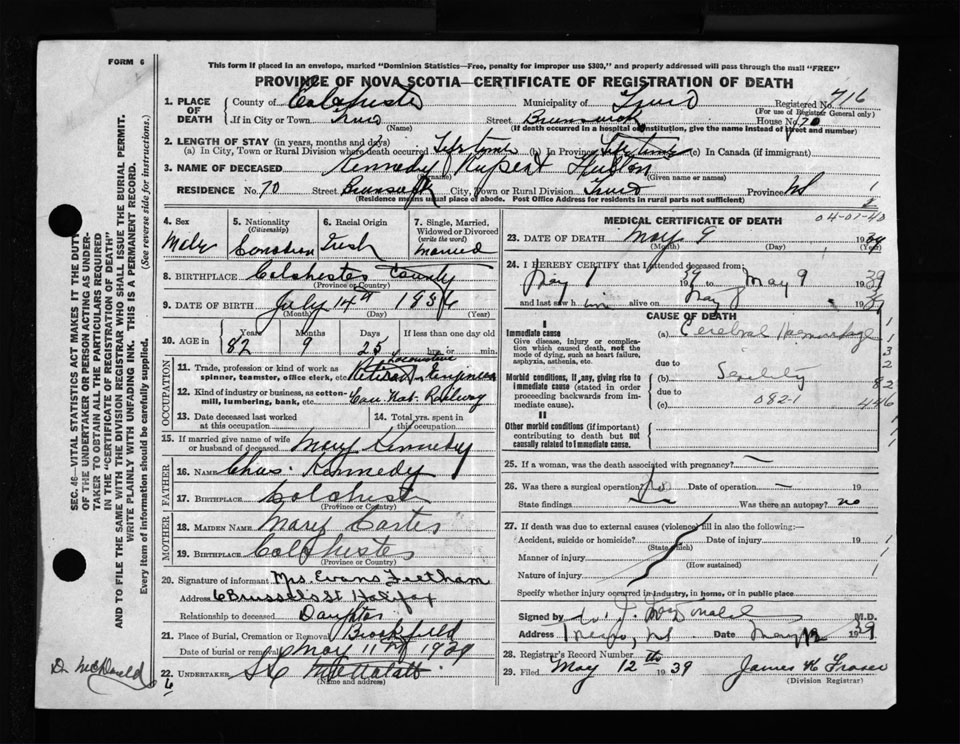 FORM 6
This form if placed in an envelope, marked "Dominion Statistics—Free, penalty for improper use $300," and properly addressed will pass through the mail "FREE"
PROVINCE OF NOVA SCOTIA—CERTIFICATE OF REGISTRATION OF DEATH
1. PLACE OF DEATH County of Colchester Municipality of Truro Registered No. 716
(For use of Registrar General only)
If in City or Town Truro Street Brunswick House No. 70
(Name) (If death occurred in a hospital or institution, give the name instead of street and number)
2. LENGTH OF STAY (in years, months and days)
(a) In City, Town or Rural Division where death occurred Life time (b) In Province Life time (c) In Canada (if immigrant)
3. NAME OF DECEASED Kennedy Rupert
(Surname) (Given name or names)
RESIDENCE No. 70 Street Brunswick City, Town or Rural Division Truro Province NS 1
(Residence means usual place of abode. Post Office Address for residents in rural parts not sufficient)
4. Sex Male
5. Nationality (Citizenship) Canadian
6. Racial Origin Irish
7. Single, Married, Widowed or Divorced (write the word) Married
8. BIRTHPLACE Colchester County
(Province or Country)
9. DATE OF BIRTH July 14th 1856
(Month) (Day) (Year)
10. AGE in Years Months Days If less than one day old
82 9 25 hrs. or min.
OCCUPATION
11. Trade, profession or kind of work as spinner, teamster, office clerk, etc. Retired Locomotive Engineer
12. Kind of industry or business, as cotton-mill, lumbering, bank, etc. Can. Nat. Railway
13. Date deceased last worked at this occupation
14. Total yrs. spent in this occupation
15. If married give name of wife or husband of deceased Mary Kennedy
FATHER
16. NAME Chas. Kennedy
17. BIRTHPLACE Colchester
(Province or Country)
MOTHER
18. MAIDEN NAME Mary
19. BIRTHPLACE Colchester
(Province or Country)
20. Signature of informant Mrs. Evans Feetham
Address 6 Brussels St Halifax
Relationship to deceased Daughter
21. Place of Burial, Cremation or Removal Brookfield
Date of burial or removal May 11th 1939
22. UNDERTAKER
(Name and address)
MEDICAL CERTIFICATE OF DEATH
04-01-40
23. DATE OF DEATH May 9 1939
(Month) (Day) (Year)
24. I HEREBY CERTIFY that I attended deceased from:
May 1 1939 to May 9 1939
and last saw h im alive on May 1939
CAUSE OF DEATH
I
Immediate cause (a) Cerebral Haemorrhage
Give disease, injury or complication which caused death, not the mode of dying, such as heart failure, asphyxia, asthenia, etc.
due to
Morbid conditions, if any, giving rise to immediate cause (stated in order proceeding backwards from immediate cause). (b) Senility
due to 082-1
(c)
II
Other morbid conditions (if important) contributing to death but not causally related to immediate cause.
25. If a woman, was the death associated with pregnancy? —
26. Was there a surgical operation? No Date of operation — 19
State findings — Was there an autopsy? no
27. If death was due to external causes (violence) fill in also the following:—
Accident, suicide or homicide? Date of injury 19
(State which)
Manner of injury
(How sustained)
Nature of injury
Specify whether injury occurred in industry, in home, or in public place
Signed by McDonald M.D.
Address Truro, NS Date May 12 1939
28. Registrar's Record Number
29. Filed May 12th 1939 James H Fraser
(Division Registrar)
SEC. 46—VITAL STATISTICS ACT MAKES IT THE DUTY OF THE UNDERTAKER OR PERSON ACTING AS UNDERTAKER TO OBTAIN ALL THE PARTICULARS REQUIRED IN THE "CERTIFICATE OF REGISTRATION OF DEATH" AND TO FILE THE SAME WITH THE DIVISION REGISTRAR WHO SHALL ISSUE THE BURIAL PERMIT.
WRITE PLAINLY WITH UNFADING INK. THIS IS A PERMANENT RECORD.
Every item of information should be carefully supplied. (See reverse side for instructions.)
D. McDonald